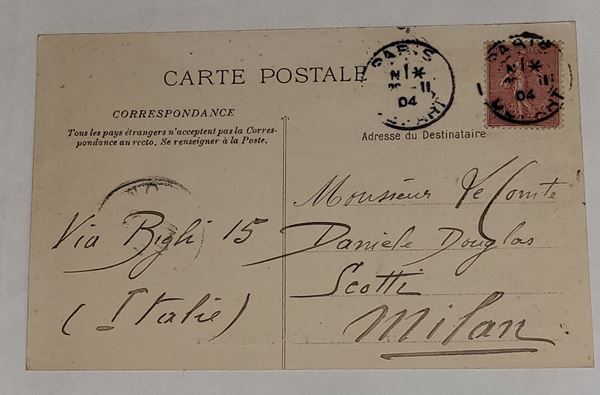 CARTE POSTALE
CORRESPONDANCE
Tous les pays étrangers n'acceptent pas la Corres-
pondance au recto. Se renseigner à la Poste.
Adresse du Destinataire
PARIS
04
DEPART
PARIS
04
Monsieur le Comte
Daniele Douglas
Scotti
Milan
Via Bigli 15
(Italie)